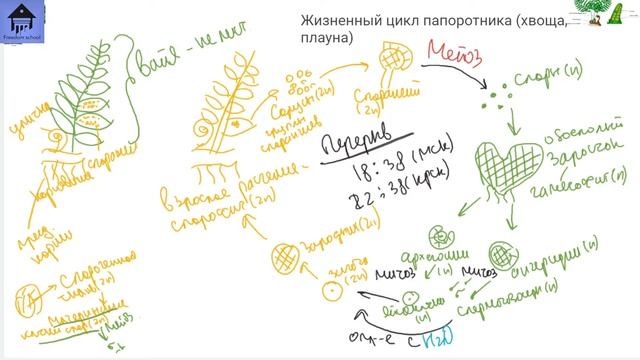 Freedom school
Жизненный цикл папоротника (хвоща,
плауна)
вайя - не лист
улитка
спорофилл
корневище
прид.
корни
Спорогенная
ткань (2n)
Материнские
клетки спор (2n)
Мейоз
Сорусы (2n)
группы
спорангиев
Спорангий
(2n)
Мейоз
Споры (n)
обоеполый
Заросток
гаметофит (n)
Перерыв
18:38 (МСК)
22:38 (КРСК)
взрослое растение -
спорофит (2n)
Зародыш (2n)
зигота
(2n)
архегонии
(n)
антеридии (n)
митоз
митоз
яйцеклетка
(n)
сперматозоиды (n)
опл-е с H2O